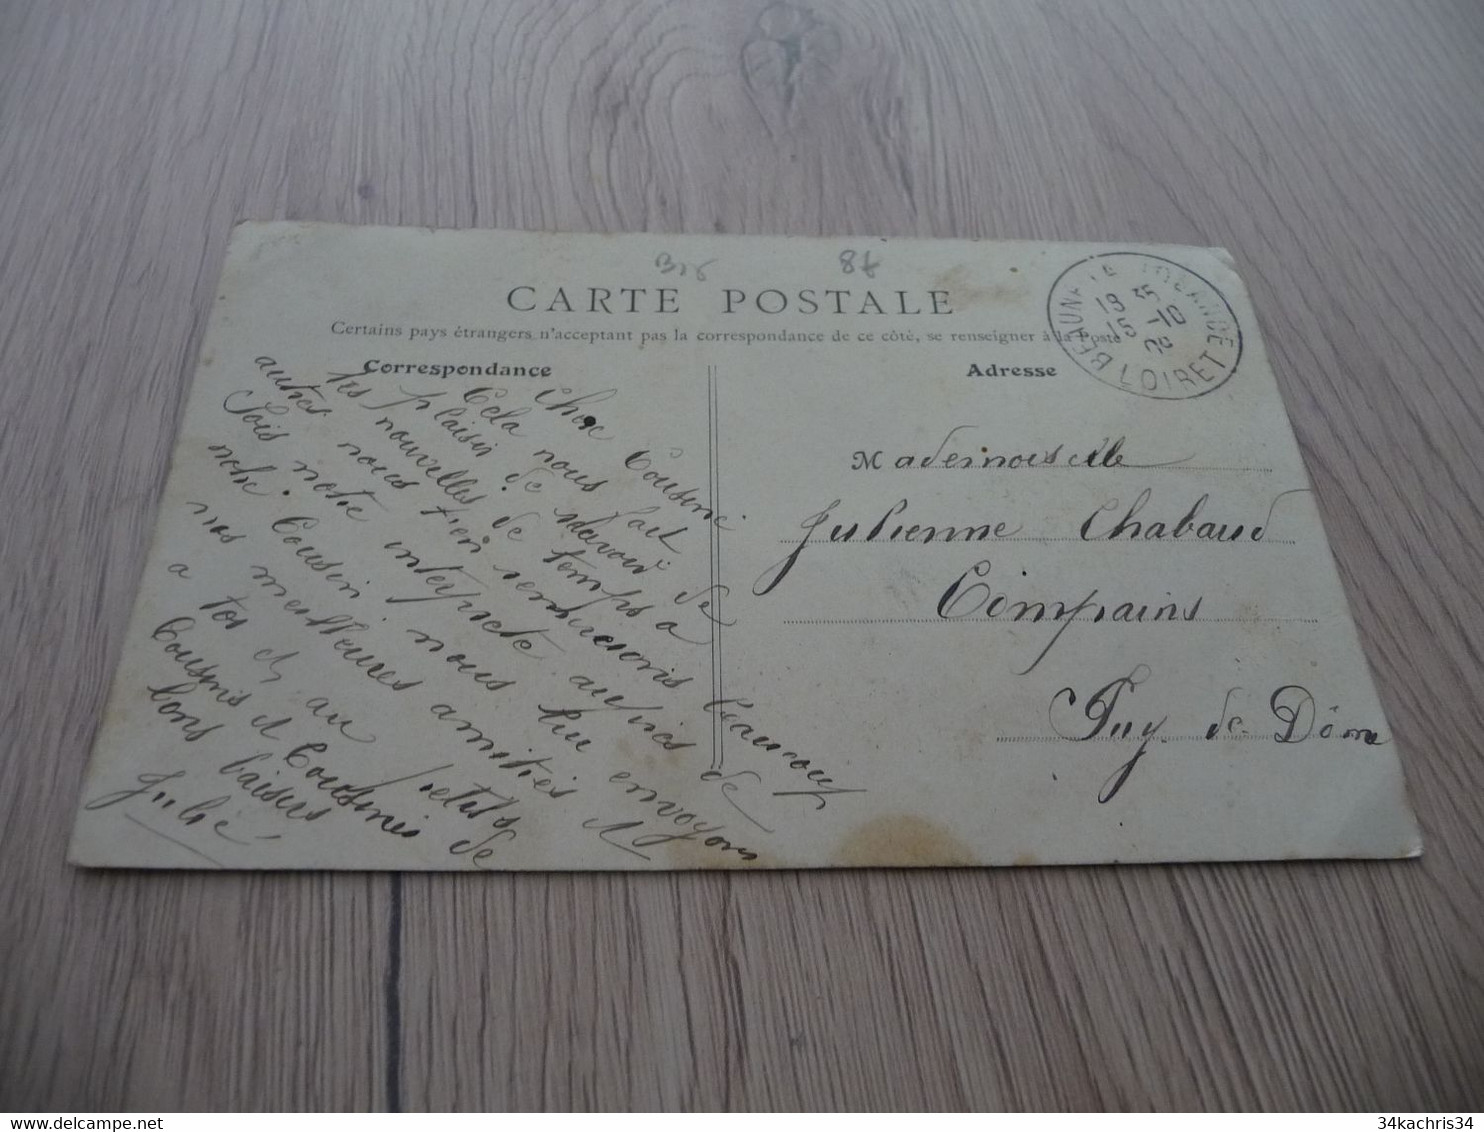 Bis 8f
CARTE POSTALE
Certains pays étrangers n'acceptant pas la correspondance de ce côté, se renseigner à la Poste
Correspondance
Adresse
BEAUNE LA ROLANDE
18 35
15 -10
09
LOIRET
Chere Cousine
Cela nous fait
plaisir de davoir de
tes nouvelles de temps a
autres nous ten remercions beaucoup
Sois notre interprete aupres de
notre Cousin nous lui envoyons
nos meilleures amitiés et
a toi et au petits
Cousins et Cousines de
bons baisers
Julie
Mademoiselle
Julienne Chabaud
Compains
Puy-de-Dôme
34kachris34 34kachris34